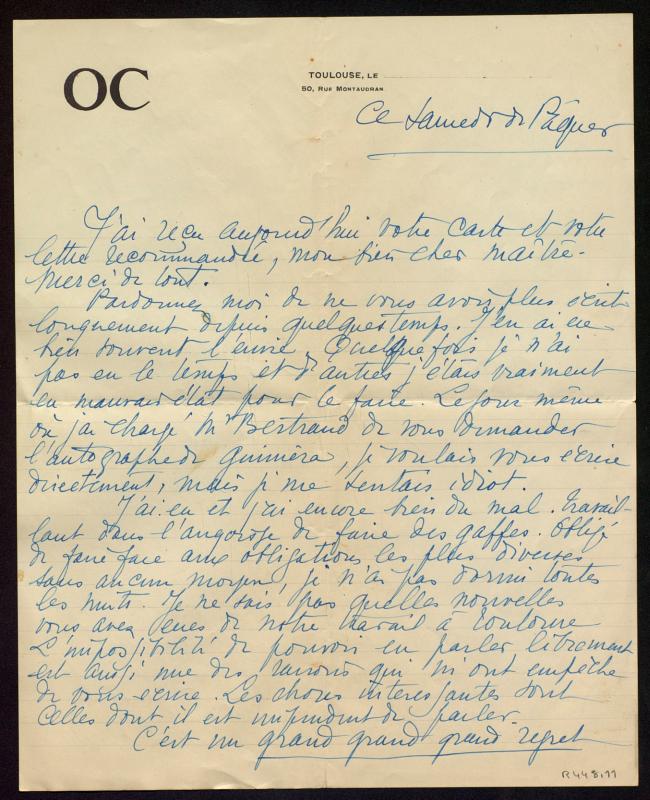 OC
TOULOUSE, LE
50, RUE MONTAUDRAN
Ce Samedi de Pâques
J'ai reçu aujourd'hui votre carte et votre
lettre recommandée, mon bien cher maître.
Merci de tout.
Pardonnez moi de ne vous avoir plus écrit
longuement depuis quelques temps. J'en ai eu
bien souvent l'envie. Quelquefois je n'ai
pas eu le temps et d'autres j'étais vraiment
en mauvais état pour le faire. Le jour même
où j'ai chargé Mr Bertrand de vous demander
l'autographe de Guimera, je voulais vous écrire
directement, mais je me sentais idiot.
J'ai eu et j'ai encore bien du mal. Travail-
lant dans l'angoisse de faire des gaffes. Obligé
de faire face aux obligations les plus diverses
sans aucun moyen, je n'ai pas dormi toutes
les nuits. Je ne sais pas quelles nouvelles
vous avez eues de notre travail à Toulouse
L'impossibilité de pouvoir en parler librement
est aussi une des raisons qui m'ont empêché
de vous écrire. Les choses intéressantes sont
celles dont il est imprudent de parler.
C'est un grand grand grand regret
R 448,11